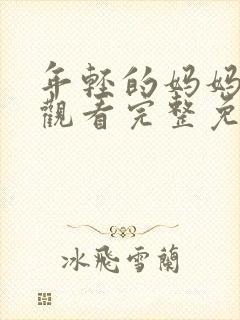 年轻的妈妈
觀看完整免
冰飛雪蘭